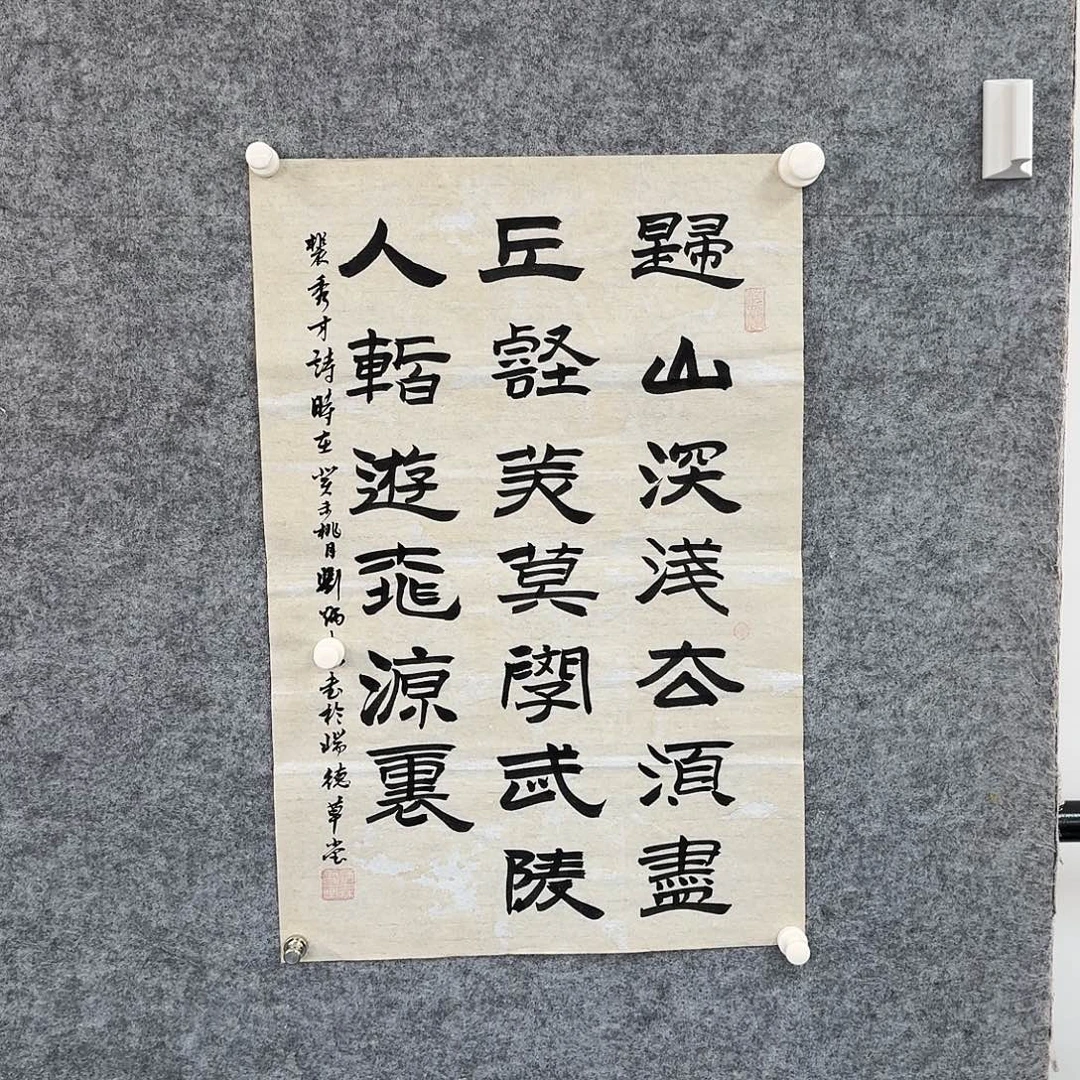 歸山深淺去須盡
丘壑美莫學武陵
人暫遊桃源裏
裴秀才詩時在癸未桃月劉炳 書於端德草堂